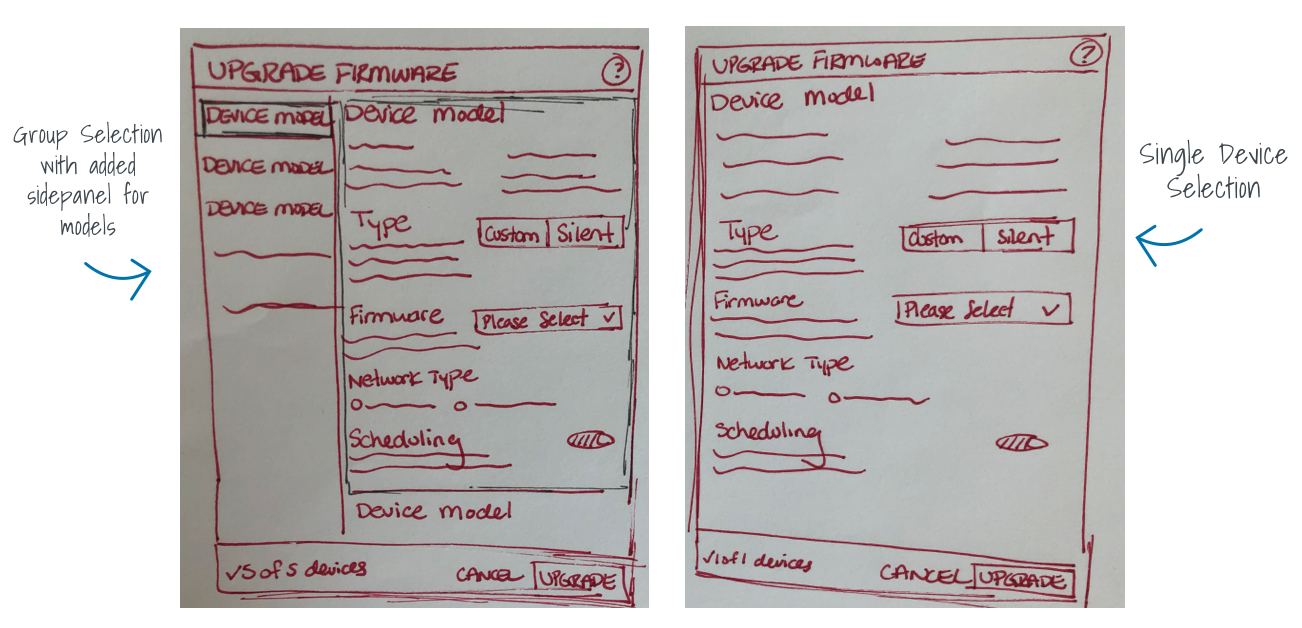 Group Selection
with added
sidepanel for
models
UPGRADE FIRMWARE ?
DEVICE MODEL
DEVICE MODEL
DEVICE MODEL
Device model
Type
Custom Silent
Firmware
Please Select
Network Type
Scheduling
Device model
✓5 of 5 devices
CANCEL UPGRADE
UPGRADE FIRMWARE ?
Device model
Type
Custom Silent
Firmware
Please Select
Network Type
Scheduling
✓1 of 1 devices
CANCEL UPGRADE
Single Device
Selection